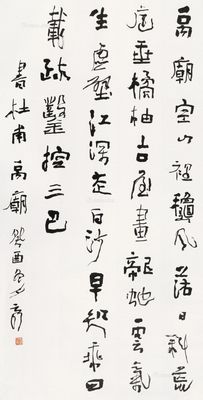 禹廟空山裡穐風落日斜荒
庭垂橘柚古屋畫龍虵雲氣
生虛壁江深走白沙早知乘四
載疏鑿控三巴
書杜甫禹廟癸酉冬